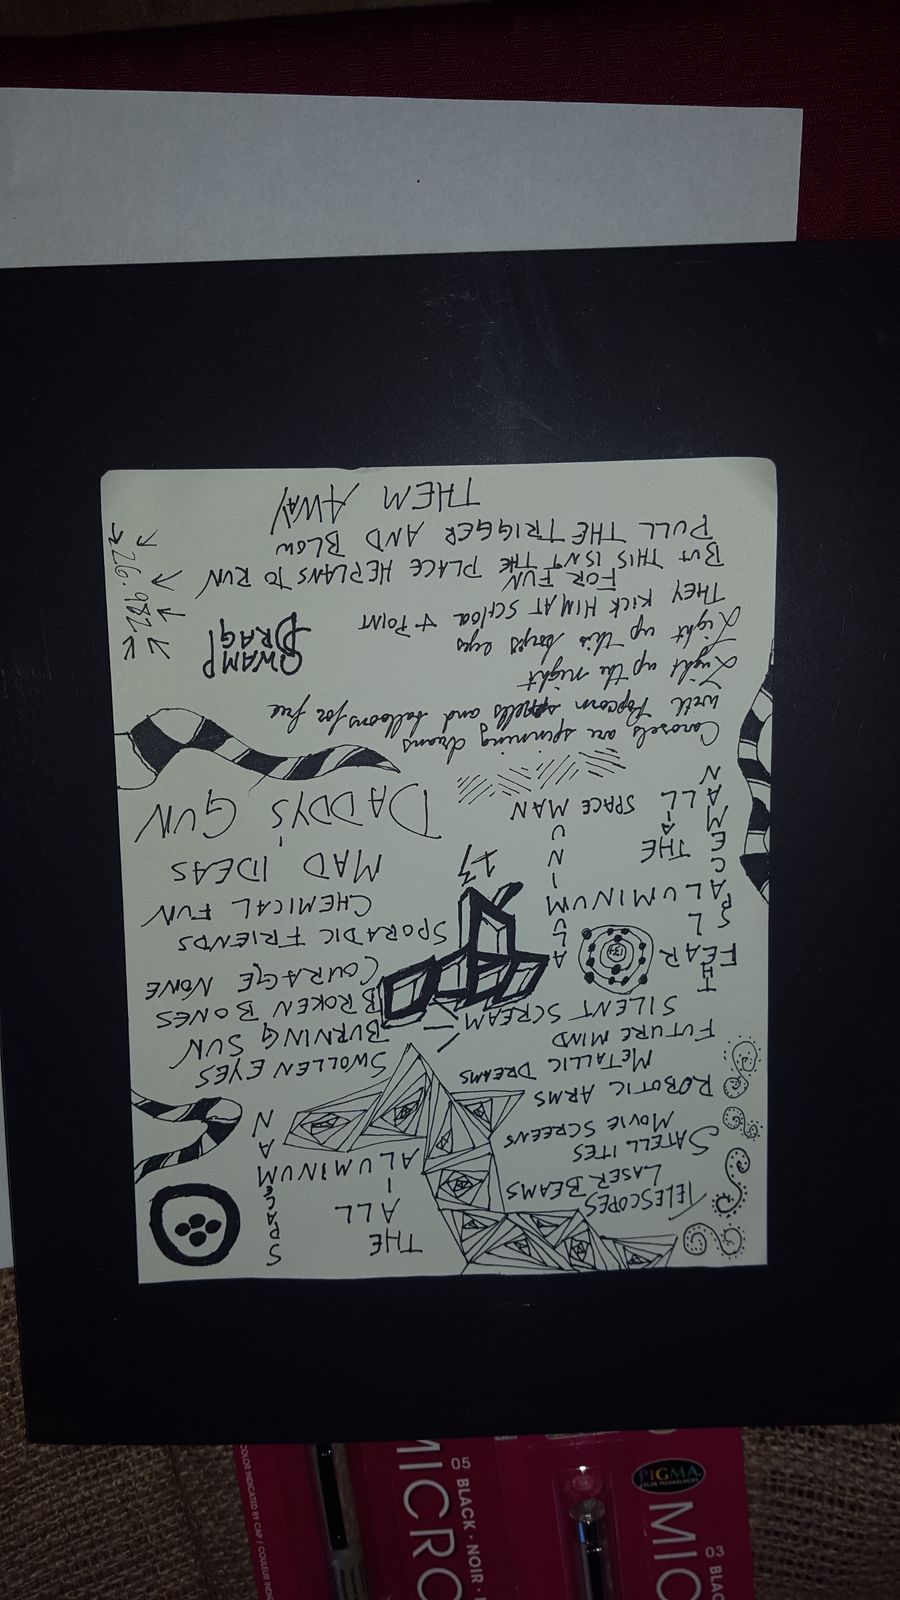 THE
ALL
ALUMINUM
SPACEMAN
TELESCOPES
LASER BEAMS
SATELLITES
MOVIE SCREENS
ROBOTIC ARMS
METALLIC DREAMS
FUTURE MIND
SILENT SCREAM
SWOLLEN EYES
BURNING SUN
BROKEN BONES
COURAGE NONE
SPORADIC FRIENDS
CHEMICAL FUN
MAD IDEAS
DADDY'S GUN
TH
FEAR
ALUMINUM
THE
ALL-A
SPACEMAN
ALUMINUM
SPACE MAN
13
Carosels are spinning dreams
with Popcorn smells and balloons for free
Light up the night
Light up this boys eyes
THEY KICK HIM AT SCHOOL & POINT
FOR FUN
BUT THIS ISN'T THE PLACE HE PLANS TO RUN
PULL THE TRIGGER AND BLOW
THEM AWAY
QWAMP
DRAG!
26.982
MICRO
05 BLACK · NOIR
COLOR INDICATED BY CAP
PIGMA
MIC
03 BLAC